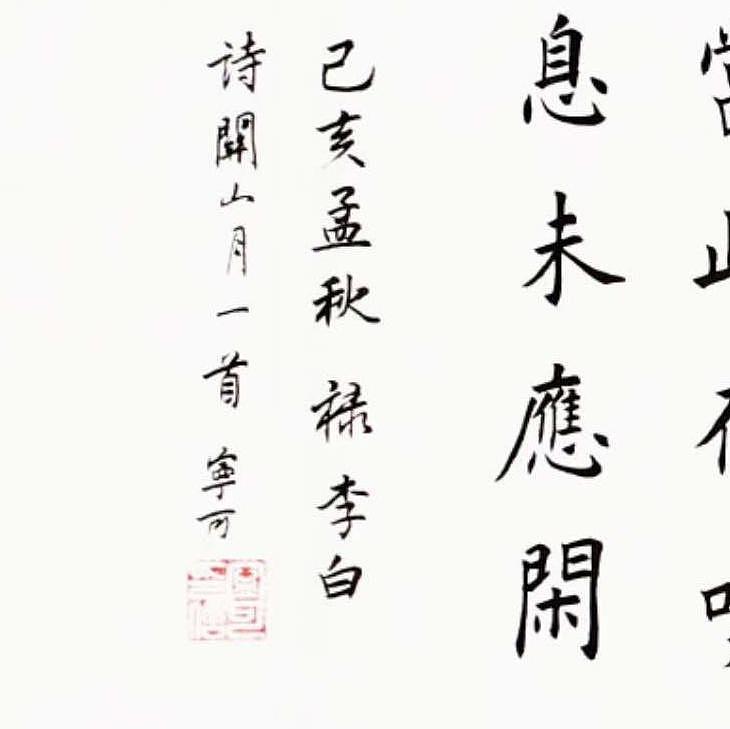 息未應閑
己亥孟秋 禄李白
詩關山月一首 寧可